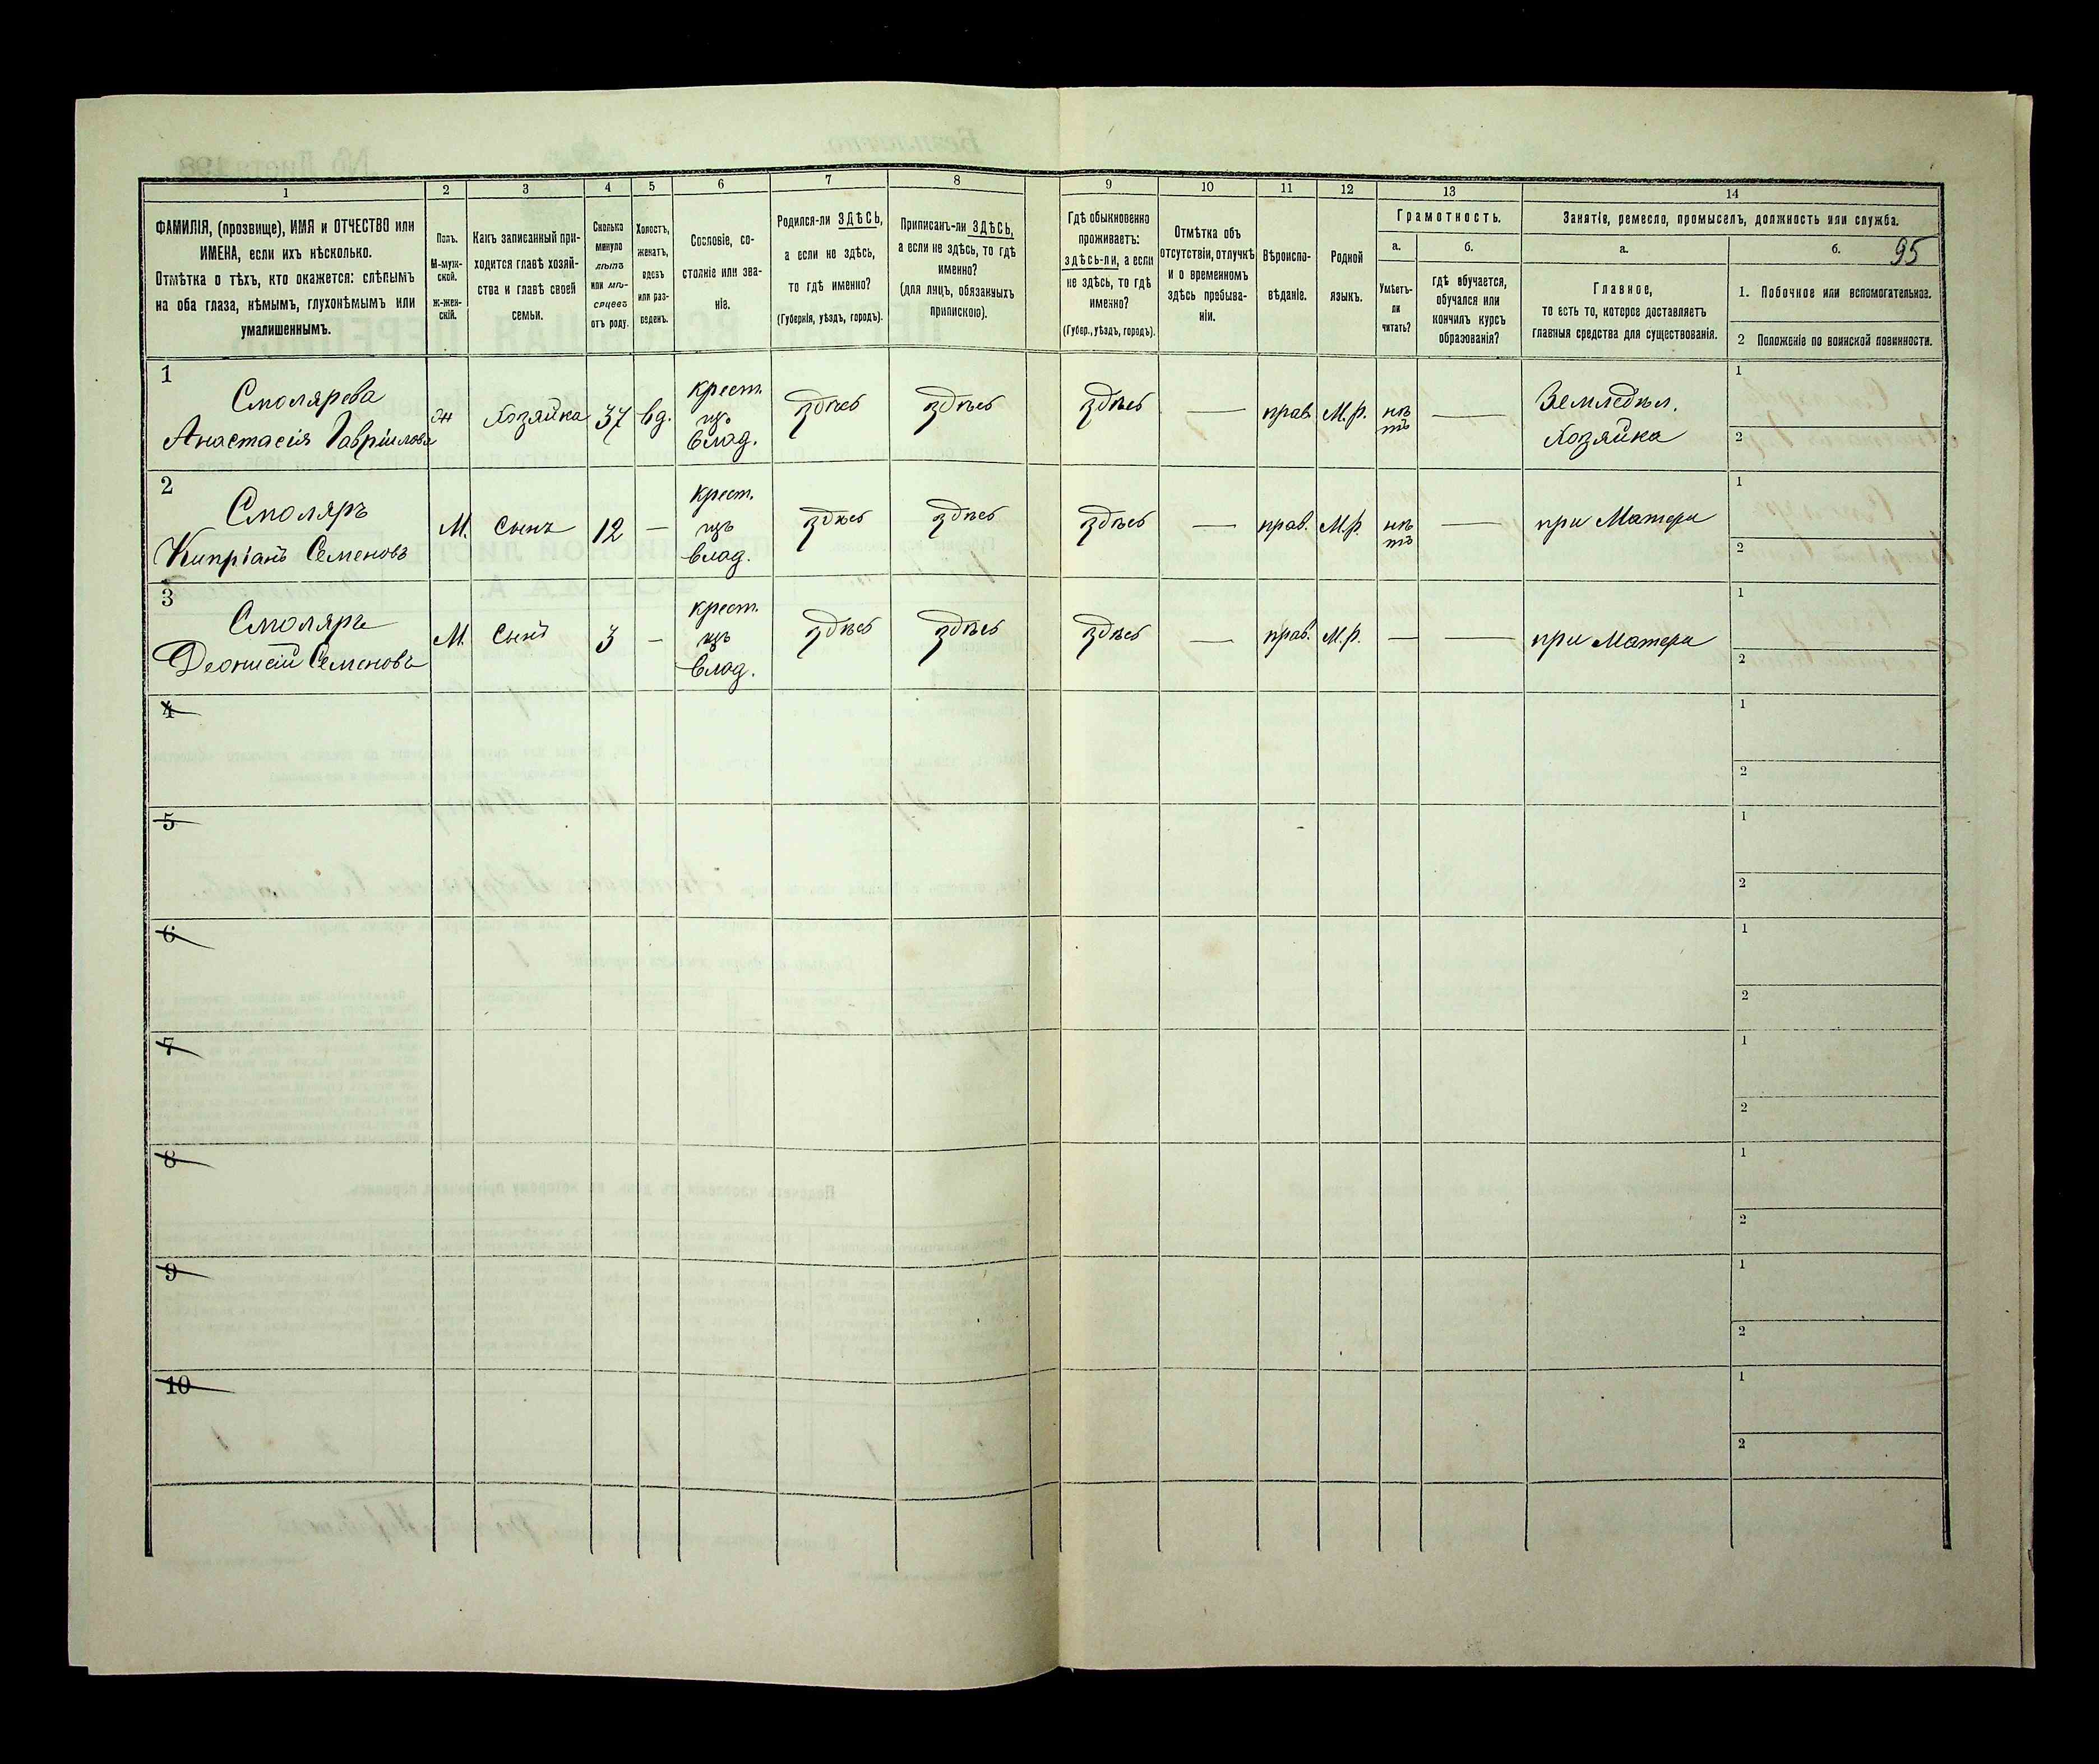 1 2 3 4 5 6 7 8 9 10 11 12 13 14
ФАМИЛІЯ, (прозвище), ИМЯ и ОТЧЕСТВО или
ИМЕНА, если ихъ нѣсколько.
Отмѣтка о тѣхъ, кто окажется: слѣпымъ
на оба глаза, нѣмымъ, глухонѣмымъ или
умалишеннымъ.
Полъ.
М-муж-
ской.
ж-жен-
скій.
Какъ записанный при-
ходится главѣ хозяй-
ства и главѣ своей
семьи.
Сколько
минуло
лѣтъ
или мѣ-
сяцевъ
отъ роду.
Холостъ,
женатъ,
вдовъ
или раз-
веденъ.
Сословіе, со-
стояніе или зва-
ніе.
Родился-ли ЗДѢСЬ,
а если не здѣсь,
то гдѣ именно?
(Губернія, уѣздъ, городъ).
Приписанъ-ли ЗДѢСЬ,
а если не здѣсь, то гдѣ
именно?
(для лицъ, обязанныхъ
припискою).
Гдѣ обыкновенно
проживаетъ:
здѣсь-ли, а если
не здѣсь, то гдѣ
именно?
(Губер., уѣздъ, городъ).
Отмѣтка объ
отсутствіи, отлучкѣ
и о временномъ
здѣсь пребыва-
ніи.
Вѣроиспо-
вѣданіе.
Родной
языкъ.
Грамотность.
а.
Умѣетъ-
ли
читать?
б.
гдѣ обучается,
обучался или
кончилъ курсъ
образованія?
Занятіе, ремесло, промыселъ, должность или служба.
а.
Главное,
то есть то, которое доставляетъ
главныя средства для существованія.
б. 95
1. Побочное или вспомогательное.
2 Положеніе по воинской повинности.
1
Смолярева
Анастасія Гавріилова
ж
Хозяйка
37
вд.
крест.
изъ
влад.
здѣсь
здѣсь
здѣсь
—
прав.
М.р.
нѣ
тъ
—
Земледѣл.
Хозяйка
1
2
2
Смоляръ
Кипріанъ Семеновъ
М.
Сынъ
12
—
крест.
изъ
влад.
здѣсь
здѣсь
здѣсь
—
прав.
М.р.
нѣ
тъ
—
при Матери
1
2
3
Смоляръ
Деонисій Семеновъ
М.
Сынъ
3
—
крест.
изъ
влад.
здѣсь
здѣсь
здѣсь
—
прав.
М.р.
—
—
при Матери
1
2
4
1
2
5
1
2
6
1
2
7
1
2
8
1
2
9
1
2
10
1
2